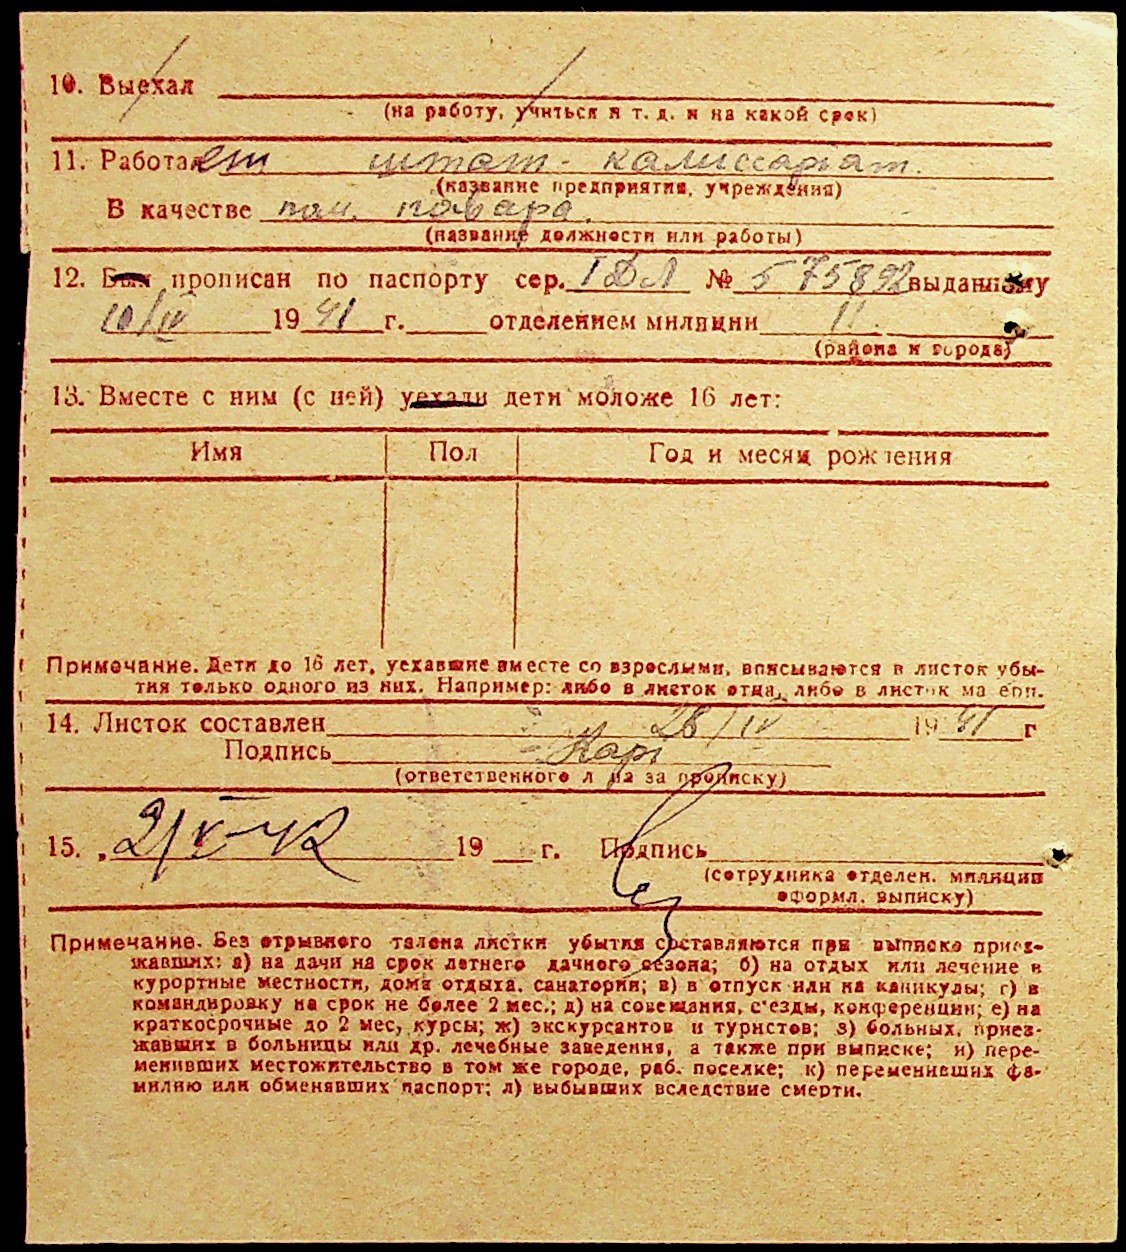 10. Выехал
(на работу, учиться и т. д. и на какой срок)
11. Работает штат-камиссариат.
(название предприятия, учреждения)
В качестве пом. повара.
(название должности или работы)
12. Был прописан по паспорту сер. I ДЛ № 575892 выданному
10/IV 1941 г. отделением милиции 11.
(района и города)
13. Вместе с ним (с ней) уехали дети моложе 16 лет:
Имя Пол Год и месяц рождения
Примечание. Дети до 16 лет, уехавшие вместе со взрослыми, вписываются в листок убы-
тия только одного из них. Например: либо в листок отца, либо в листок матери.
14. Листок составлен 28/IV 1941 г
Подпись
(ответственного лица за прописку)
15. „ 2/V-42 19 г. Подпись
(сотрудника отделен. милиции
оформл. выписку)
Примечание. Без отрывного талона листки убытия составляются при выписке приез-
жавших: а) на дачи на срок летнего дачного сезона; б) на отдых или лечение в
курортные местности, дома отдыха, санатории; в) в отпуск или на каникулы; г) в
командировку на срок не более 2 мес.; д) на совещания, с'езды, конференции; е) на
краткосрочные до 2 мес, курсы; ж) экскурсантов и туристов; з) больных, приез-
жавших в больницы или др. лечебные заведения, а также при выписке; и) пере-
менивших местожительство в том же городе, раб. поселке; к) переменивших фа-
милию или обменявших паспорт; л) выбывших вследствие смерти.